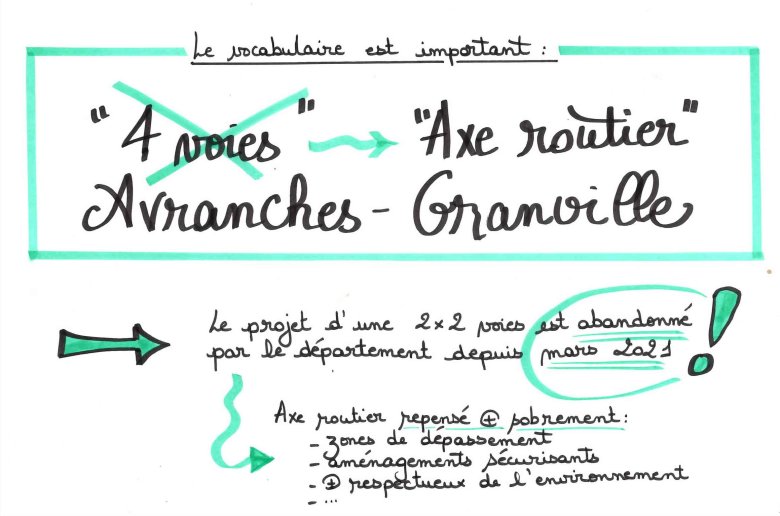 Le vocabulaire est important :
"4 voies" → "Axe routier"
Avranches - Granville
Le projet d'une 2x2 voies est abandonné
par le département depuis mars 2021 !
Axe routier repensé ⊕ sobrement :
- zones de dépassement
- aménagements sécurisants
- ⊕ respectueux de l'environnement
- ...